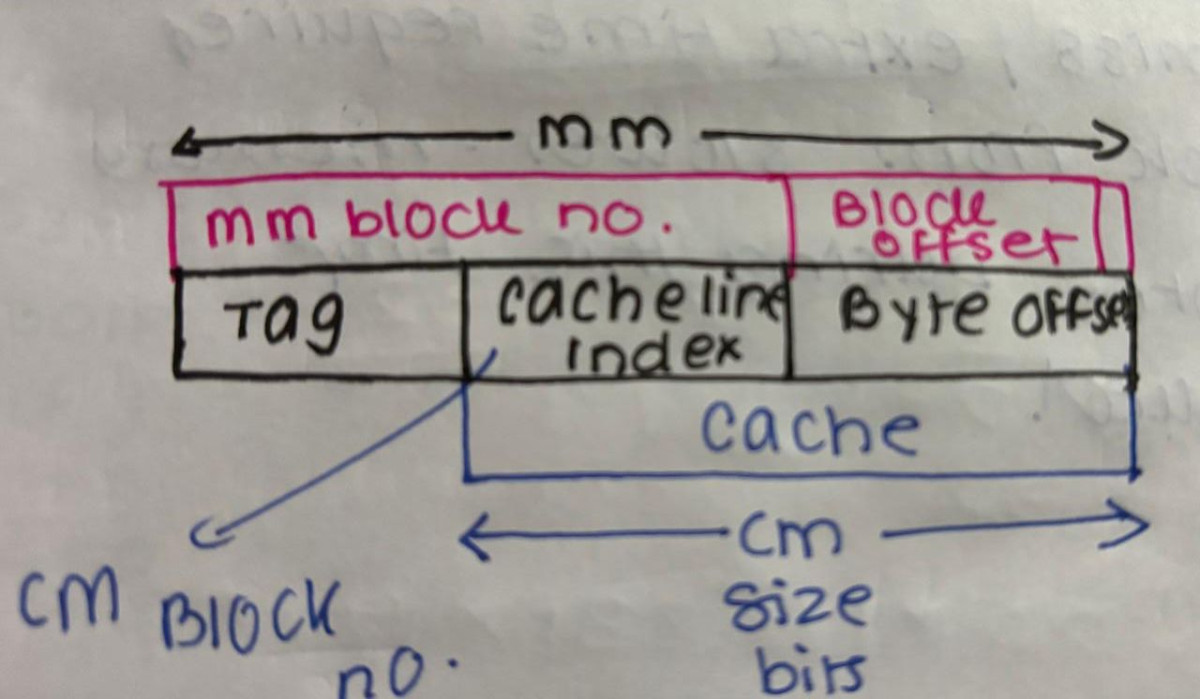 mm
mm block no.
Block
offset
Tag
Cache line
index
Byte Offset
Cache
CM
size
bits
CM Block
no.